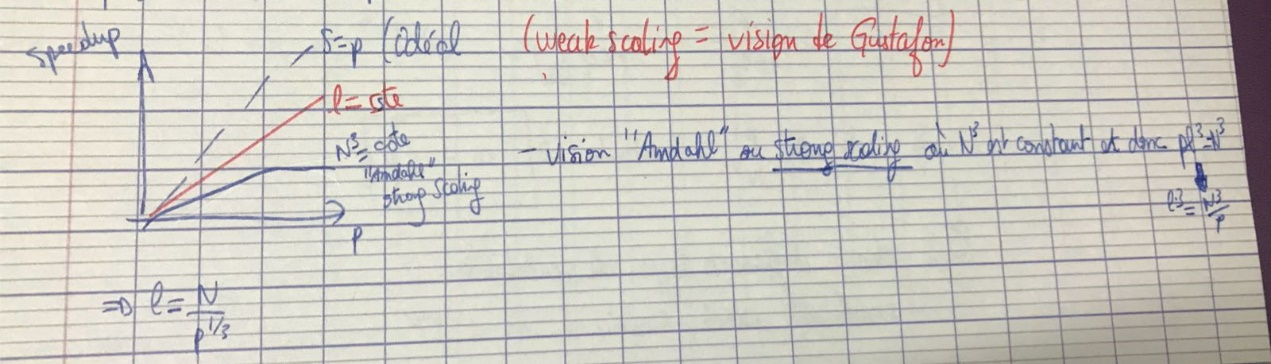 speedup
S=p (idéal (weak scaling = vision de Gustafon)
l = cste
N³ = cste
"Amdahl"
strong scaling
p
- vision "Amdahl" ou strong scaling où N³ est constant et donc pl³=N³
l³ = N³/p
⇒ l = N/p^1/3